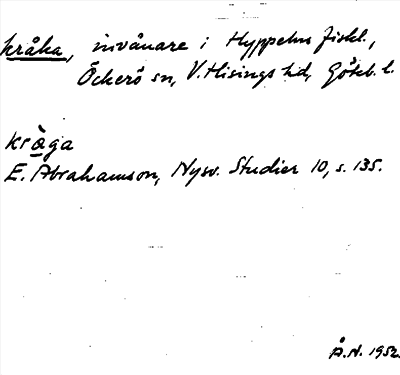 kråka, invånare i Hyppelns fiskl.,
Öckerö sn, V. Hisings hd, Göteb. l.
kràga
E. Abrahamson, Nysv. Studier 10, s. 135.
Å.N. 1952.